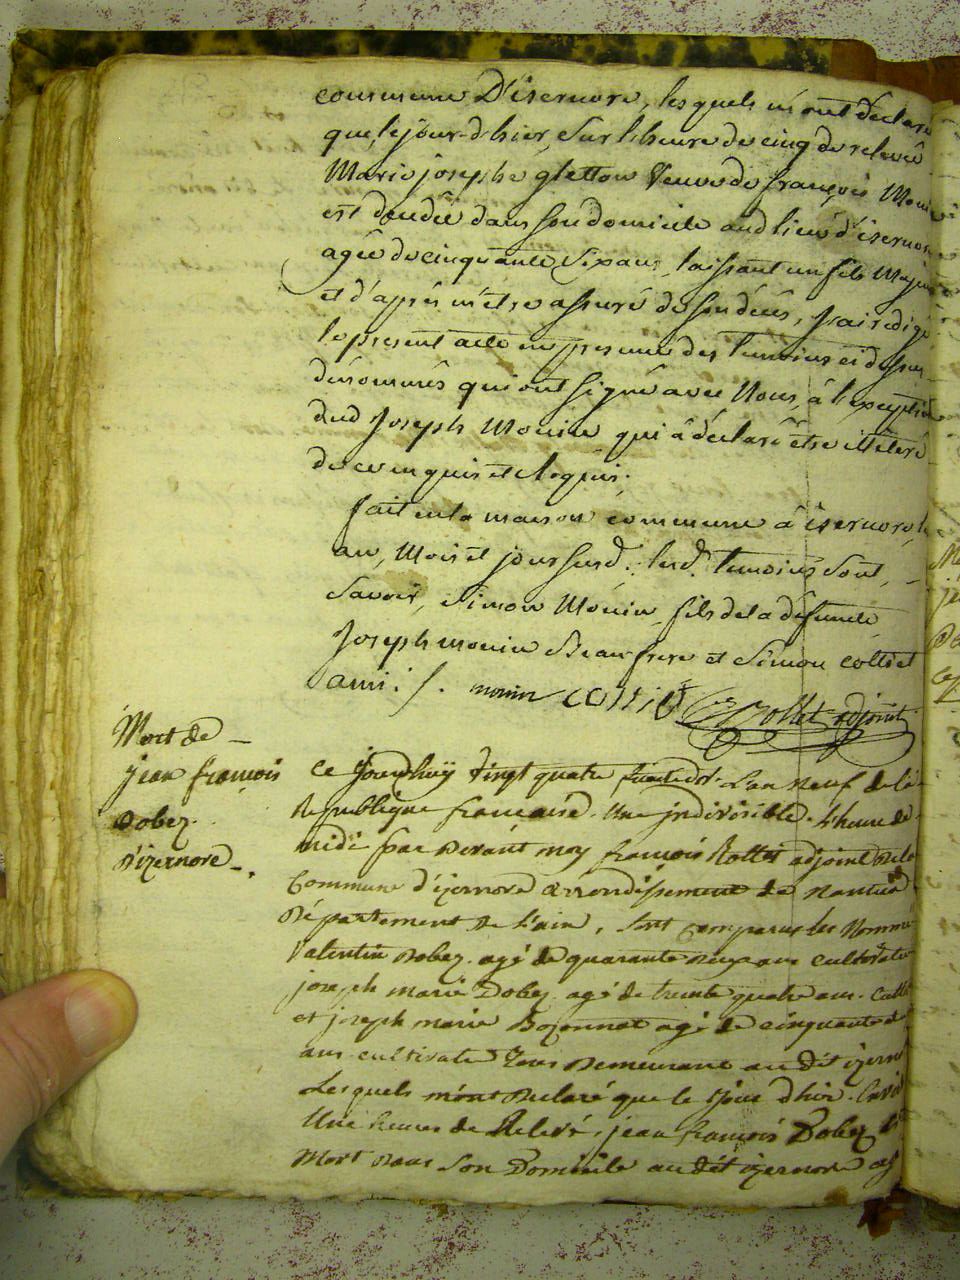 commune D'isernore, lesquels m'ont déclaré
que, le jour d'hier, sur l'heure de cinq de relevée
Marie josephe gletton Veuve de françois Moni
est décédée dans son domicile aud lieu d'isernore
agée de cinquante six ans, laissant un fils Majeur
et d'après m'être assuré de son décés, j'ai rédigé
le present acte en presence des temoins ci dessus
dénommés qui ont signé avec Nous, à l'exception
dud Joseph Monin qui à déclaré être illiteré
de ce enquis et requis.
fait en la maison commune à isernore, le
an, Mois et jour susd. lesd. temoins sont,
Savoir, Simon Monin, fils de la défunte
Joseph monin Beaufrere et Simon colliet
ami. /. monin colliet Rollet adjoint
Mort de
jean françois
Dobez
D'izernore
Ce jourdhuy Vingt quatre L'an neuf de la
Republique francaise. Une jndivisible. L'heure de
midi par Devant moy francois Rollet adjoint De la
Commune d'izernore arrondissement de Nantua
Département De L'ain, sont comparus les Nommé
Valentin Dobez. agé de quarante Deux ans cultivate
joseph marie Dobez agé de trente quatre ans. Cult
et joseph marie Bozonnat agé de cinquante
ans cultivate Tous Demeurant au dit izerno
Lesquels m'ont Declaré que le jour d'hier. Envir
Une heures de Relevé, jean francois Dobez
Mort Dans Son Domicile au dit izernore